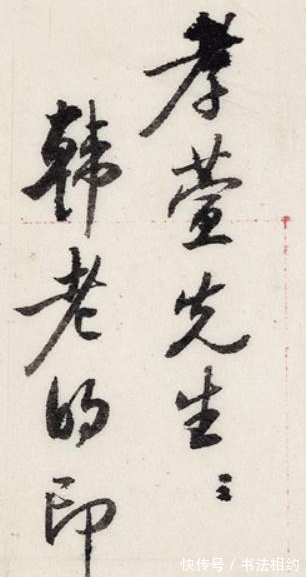 孝萱先生：
韩老的印
快传号 / 书法相约